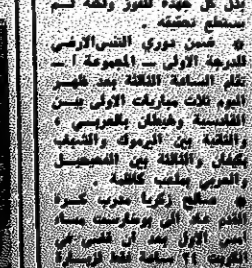 بذل كل جهده للفوز ولكنه لم
يستطع تحقيقه .
* ضمن دوري التنس الارضي
للدرجة الاولى — المجموعة أ —
تقام الساعة الثالثة بعد ظهر
اليوم ثلاث مباريات الاولى بين
القادسية وخيطان بالعربي ،
والثانية بين اليرموك والشباب
بكيفان والثالثة بين الفحيحيل
والعربي بملعب كاظمة .
* صالح زكريا مدرب كرة
القدم عاد الى بوخارست مساء
امس الاول بعد ان قضى في
الكويت ٢٤ ساعة فقط لزيارة